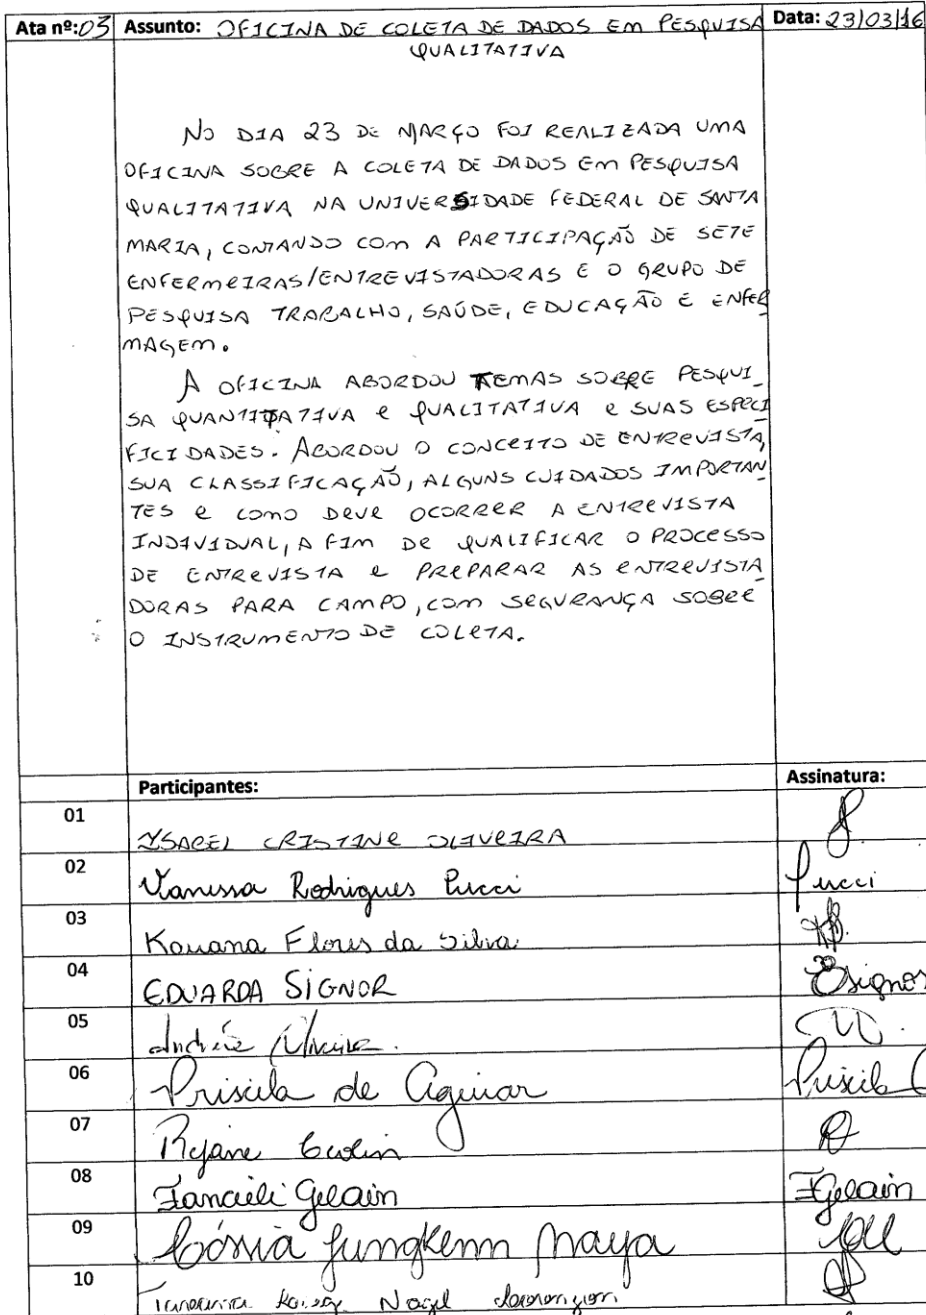 Ata nº:03 Assunto: OFICINA DE COLETA DE DADOS EM PESQUISA Data: 23/03/16
QUALITATIVA
NO DIA 23 DE MARÇO FOI REALIZADA UMA
OFICINA SOBRE A COLETA DE DADOS EM PESQUISA
QUALITATIVA NA UNIVERSIDADE FEDERAL DE SANTA
MARIA, CONTANDO COM A PARTICIPAÇÃO DE SETE
ENFERMEIRAS/ENTREVISTADORAS E O GRUPO DE
PESQUISA TRABALHO, SAÚDE, EDUCAÇÃO E ENFER
MAGEM.
A OFICINA ABORDOU TEMAS SOBRE PESQUI_
SA QUANTITATIVA e QUALITATIVA e SUAS ESPECI
FICIDADES. ABORDOU O CONCEITO DE ENTREVISTA,
SUA CLASSIFICAÇÃO, ALGUNS CUIDADOS IMPORTAN
TES e COMO DEVE OCORRER A ENTREVISTA
INDIVIDUAL, A FIM DE QUALIFICAR O PROCESSO
DE ENTREVISTA e PREPARAR AS ENTREVISTA
DORAS PARA CAMPO, COM SEGURANÇA SOBRE
O INSTRUMENTO DE COLETA.
Participantes: Assinatura:
01 ISABEL CRISTINE OLIVEIRA
02 Vanessa Rodrigues Pucci Pucci
03 Kauana Flores da Silva
04 EDUARDA SIGNOR ESignor
05
06 Priscila de Aguiar Priscila
07 Rejane
08 Francieli Gelain FGelain
09 Cássia Jungkenn Maya
10 Nagel